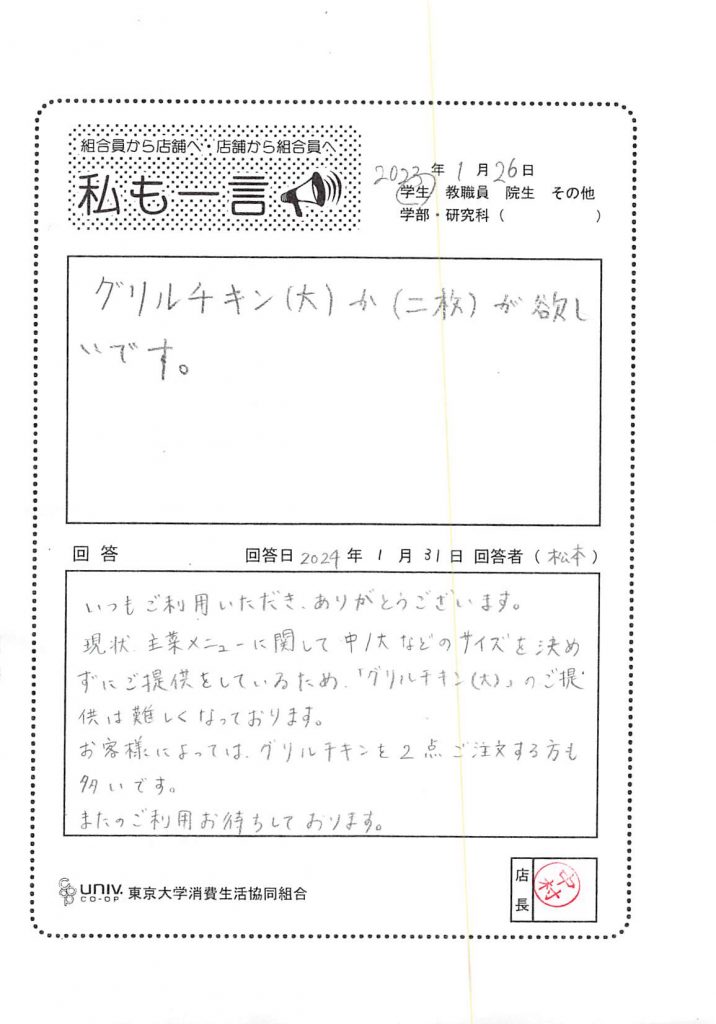 組合員から店舗へ・店舗から組合員へ
私も一言
2023年1月26日
学生 教職員 院生 その他
学部・研究科( )
グリルチキン(大)か(二枚)が欲し
いです。
回答 回答日 2024年1月31日 回答者(松本)
いつもご利用いただき、ありがとうございます。
現状、主菜メニューに関して中/大などのサイズを決め
ずにご提供をしているため、「グリルチキン(大)」のご提
供は難しくなっております。
お客様によっては、グリルチキンを2点ご注文する方も
多いです。
またのご利用お待ちしております。
CO-OP UNIV. CO-OP 東京大学消費生活協同組合
店長
中村